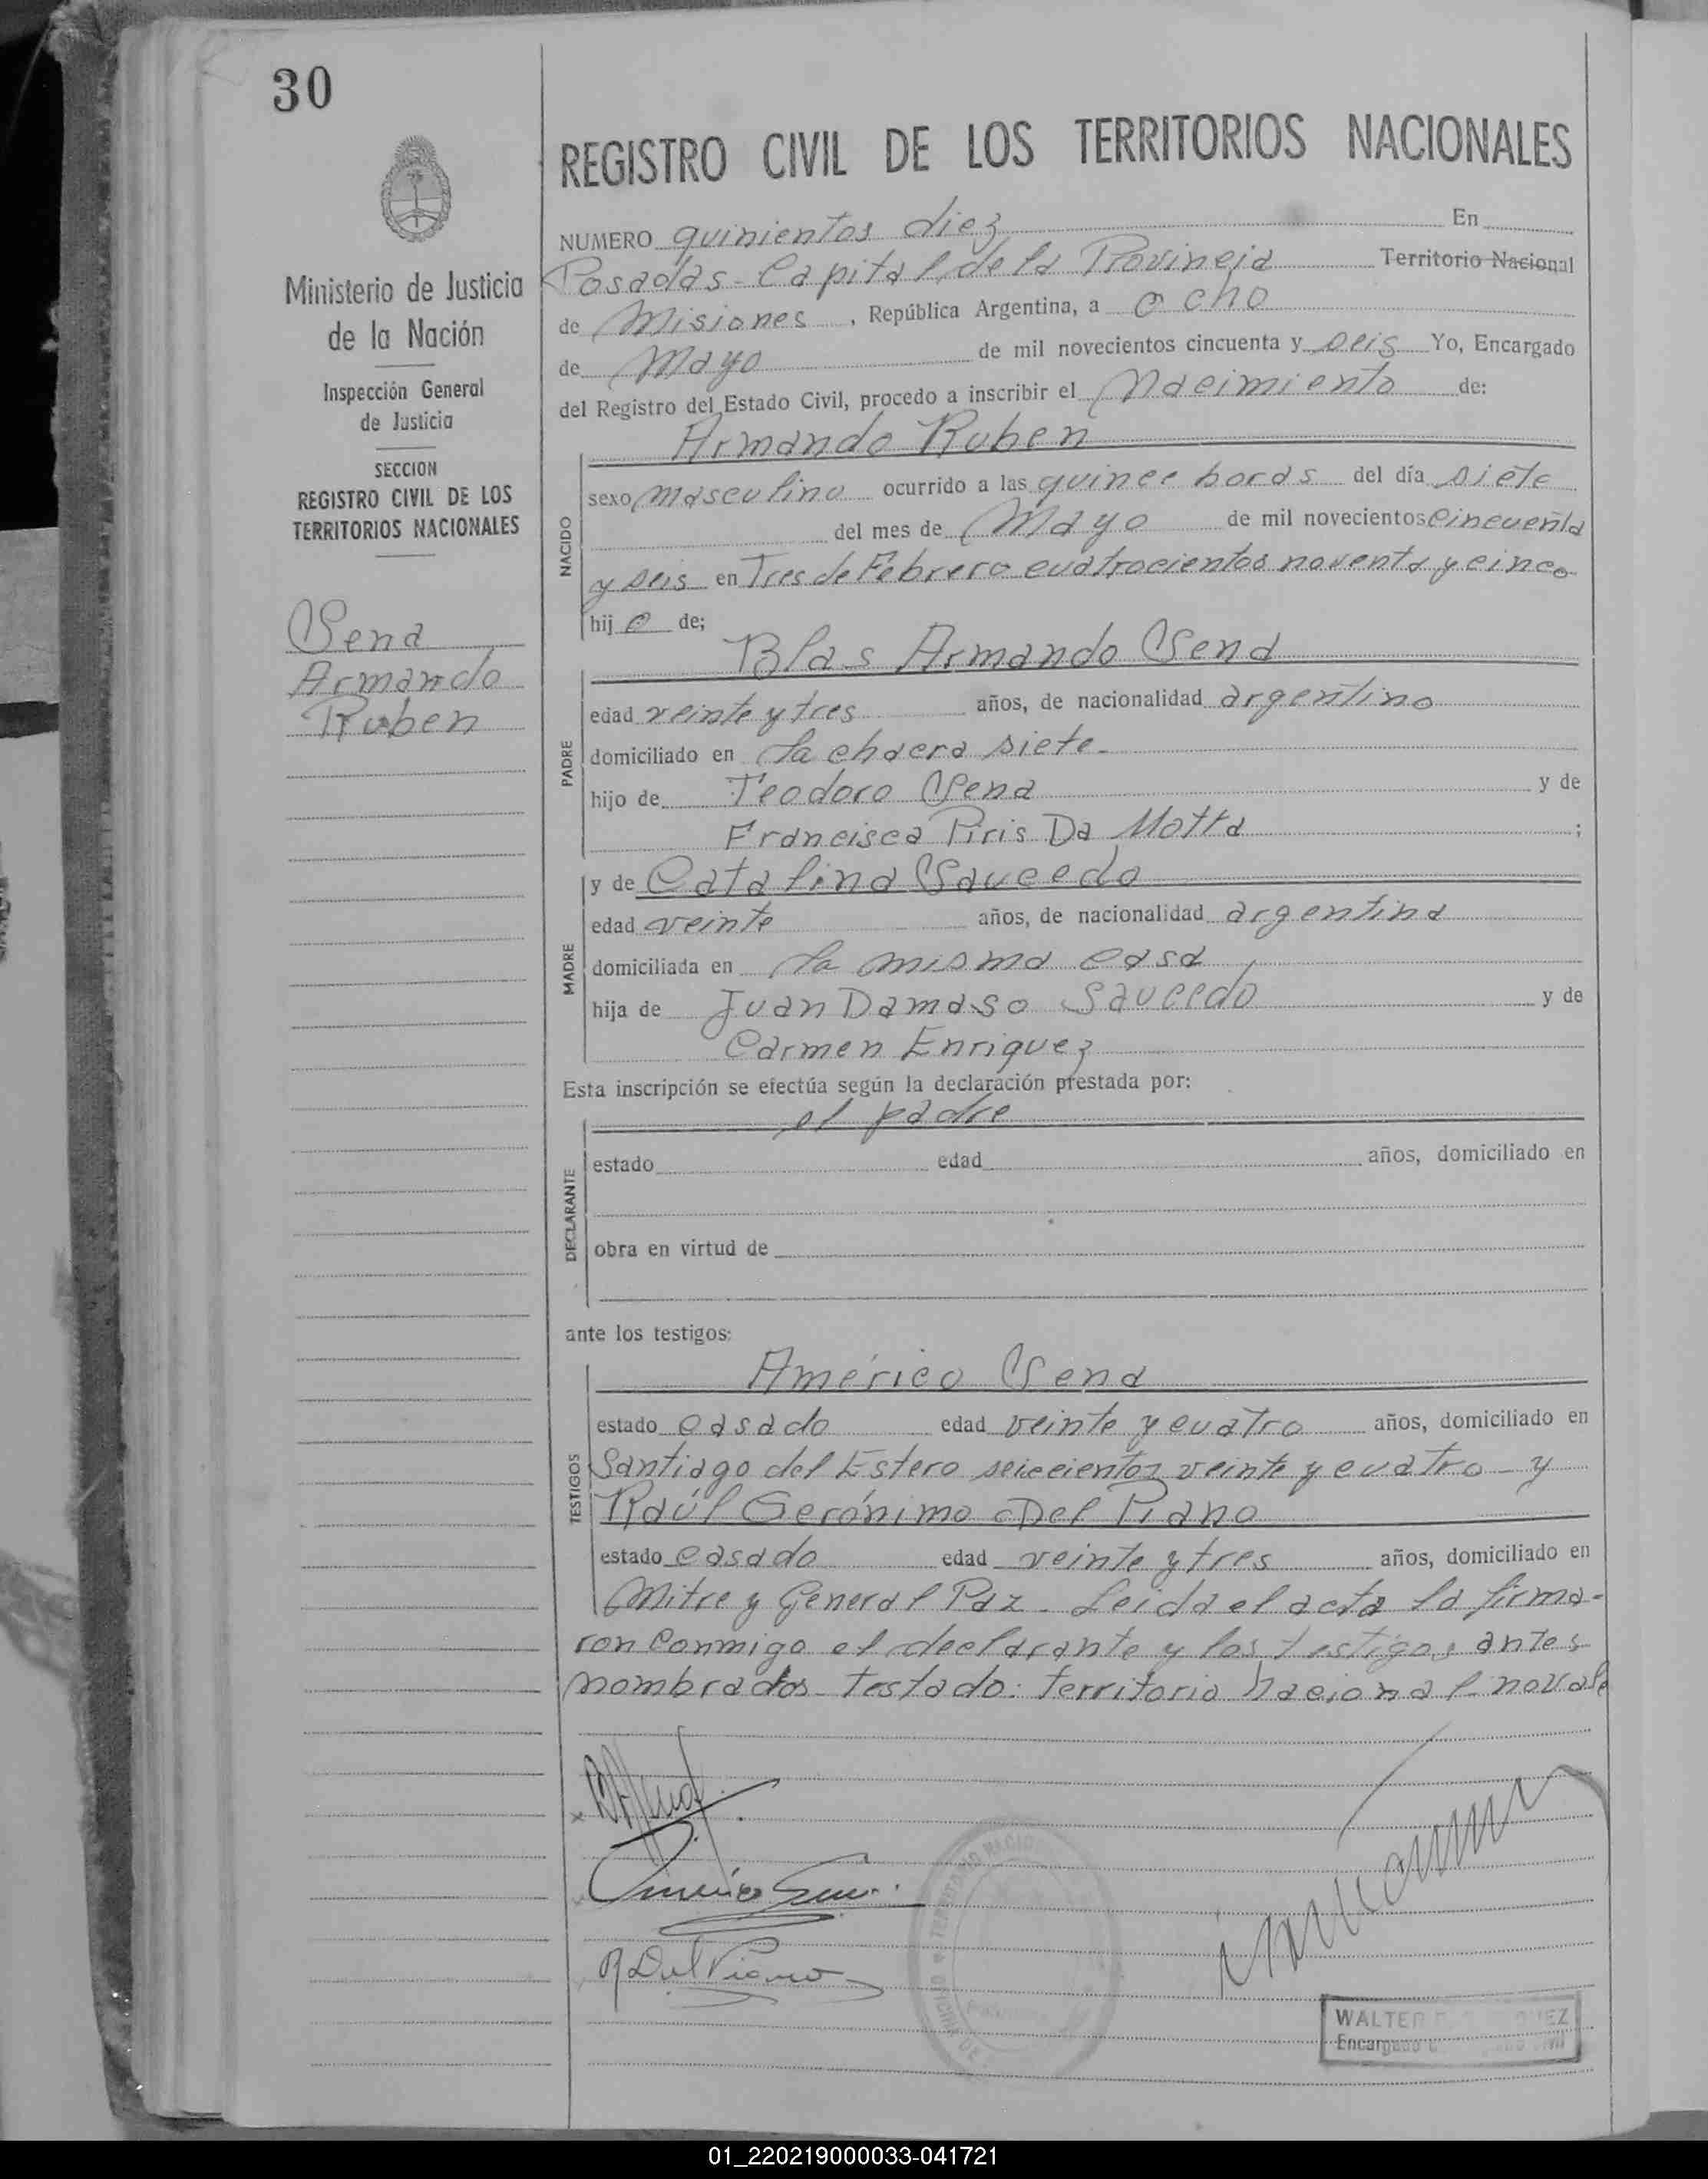 30
REGISTRO CIVIL DE LOS TERRITORIOS NACIONALES
Ministerio de Justicia
de la Nación
Inspección General
de Justicia
SECCION
REGISTRO CIVIL DE LOS
TERRITORIOS NACIONALES
Sena
Armando
Ruben
NUMERO quinientos diez En
Posadas - Capital de la Provincia Territorio Nacional
de Misiones, República Argentina, a ocho
de Mayo de mil novecientos cincuenta y seis Yo, Encargado
del Registro del Estado Civil, procedo a inscribir el Nacimiento de:
NACIDO
Armando Ruben
sexo masculino ocurrido a las quince horas del día siete
del mes de Mayo de mil novecientos cincuenta
y seis en Tres de Febrero cuatrocientos noventa y cinco
hijo de;
PADRE
Blas Armando Sena
edad veinte y tres años, de nacionalidad argentino
domiciliado en la chacra siete.
hijo de Teodoro Sena y de
Francisca Piris Da Motta ;
MADRE
y de Catalina Saucedo
edad veinte años, de nacionalidad argentina
domiciliada en la misma casa
hija de Juan Damaso Saucedo y de
Carmen Enriquez
Esta inscripción se efectúa según la declaración prestada por:
DECLARANTE
el padre
estado edad años, domiciliado en
obra en virtud de
ante los testigos:
TESTIGOS
Américo Sena
estado casado edad veinte y cuatro años, domiciliado en
Santiago del Estero seiscientos veinte y cuatro - y
Raúl Gerónimo Del Piano
estado casado edad veinte y tres años, domiciliado en
Mitre y General Paz. Leida el acta la firma-
ron conmigo el declarante y los testigos antes
nombrados - Testado: Territorio Nacional no vale
Américo Sena
R Del Piano
WALTER
Encargado
01_220219000033-041721